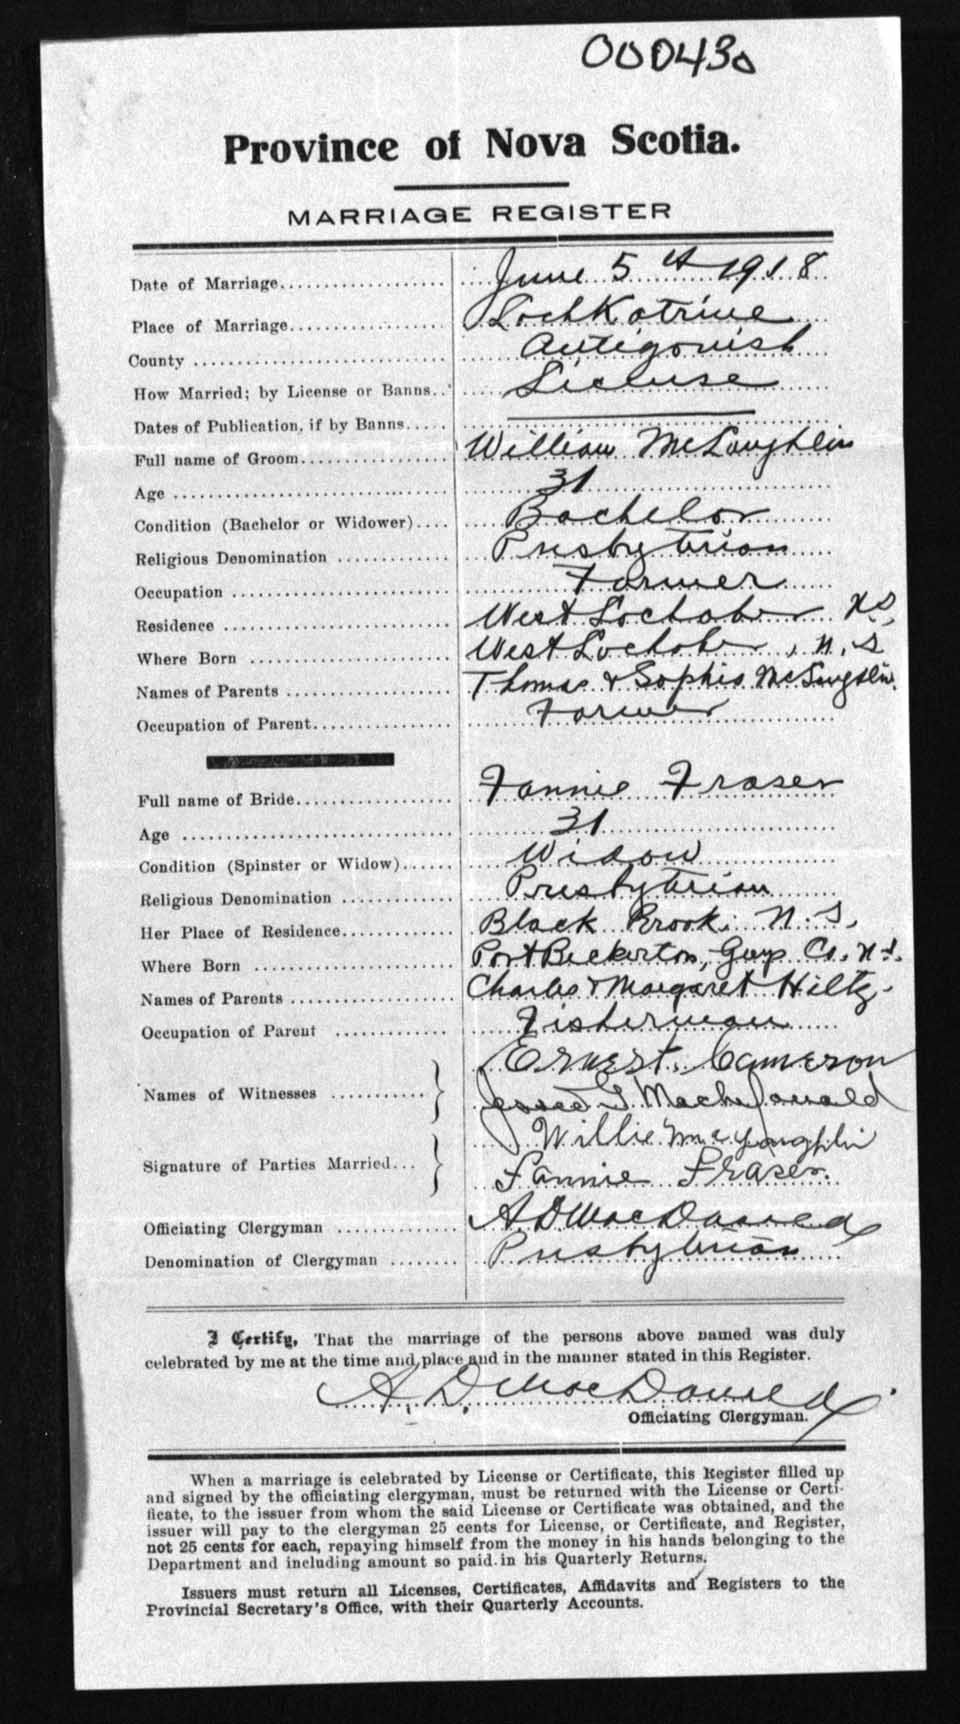 000430
Province of Nova Scotia.
MARRIAGE REGISTER
Date of Marriage June 5th 1918
Place of Marriage Loch Katrine
County Antigonish
How Married; by License or Banns License
Dates of Publication, if by Banns
Full name of Groom William McLaughlin
Age 31
Condition (Bachelor or Widower) Bachelor
Religious Denomination Presbyterian
Occupation Farmer
Residence West Lochaber NS,
Where Born West Lochaber, N.S
Names of Parents Thomas & Sophia McLaughlin.
Occupation of Parent Farmer
Full name of Bride Fannie Fraser
Age 31
Condition (Spinster or Widow) Widow
Religious Denomination Presbyterian
Her Place of Residence Black Brook, N.S.
Where Born Port Beckerton, Guys Co. N.S.
Names of Parents Charles & Margaret Hiltz.
Occupation of Parent Fisherman
Names of Witnesses Ernest Cameron
MacDonald
Signature of Parties Married Willie McLaughlin
Fannie Fraser.
Officiating Clergyman A D MacDonald
Denomination of Clergyman Presbyterian
I Certify, That the marriage of the persons above named was duly
celebrated by me at the time and place and in the manner stated in this Register.
A. D. MacDonald
Officiating Clergyman.
When a marriage is celebrated by License or Certificate, this Register filled up
and signed by the officiating clergyman, must be returned with the License or Certi-
ficate, to the issuer from whom the said License or Certificate was obtained, and the
issuer will pay to the clergyman 25 cents for License, or Certificate, and Register,
not 25 cents for each, repaying himself from the money in his hands belonging to the
Department and including amount so paid in his Quarterly Returns.
Issuers must return all Licenses, Certificates, Affidavits and Registers to the
Provincial Secretary's Office, with their Quarterly Accounts.